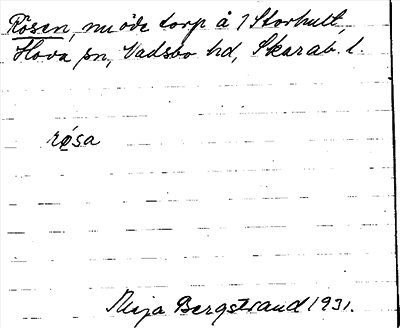 Rösen, nu öde torp å 1 Storhult,
Hova sn, Vadsbo hd, Skarab. l.
rǿsa
Maja Bergstrand 1931.